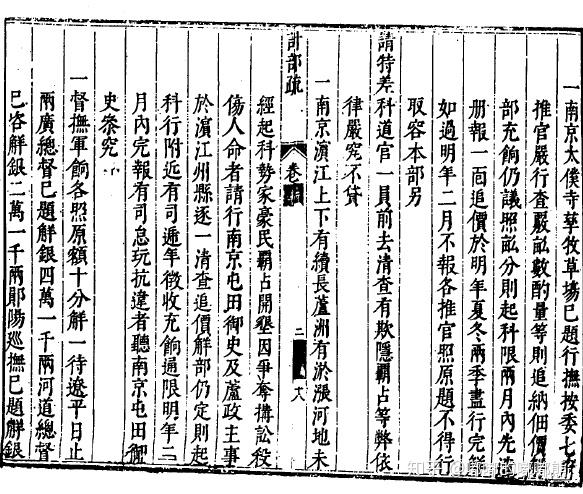 一南京太僕寺孳牧草場已題行撫按委七府
推官嚴行查嚴畝數酌量等則追納佃價
部充餉仍議照畝分則起科限兩月內先造
册報一面追價於明年夏冬兩季盡行完解
如過明年二月不報各推官照原題不得行
取容本部另
請特差科道官一員前去清查有欺隱霸占等弊依
律嚴究不貸
一南京濱江上下有續長蘆洲有淤漲河地未
計部疏 卷 二
經起科勢家豪民霸占開墾因爭奪搆訟殺
傷人命者請行南京屯田御史及蘆政主事
於濱江州縣逐一清查追價解部仍定則起
科行附近有司遞年徵收充餉通限明年二
月內完報有司怠玩抗違者聽南京屯田御
史叅究
一督撫軍餉各照原額十分解一待遼平日止
兩廣總督已題解銀四萬一千兩河道總督
已咨解銀二萬一千兩鄖陽巡撫已題解銀
知乎